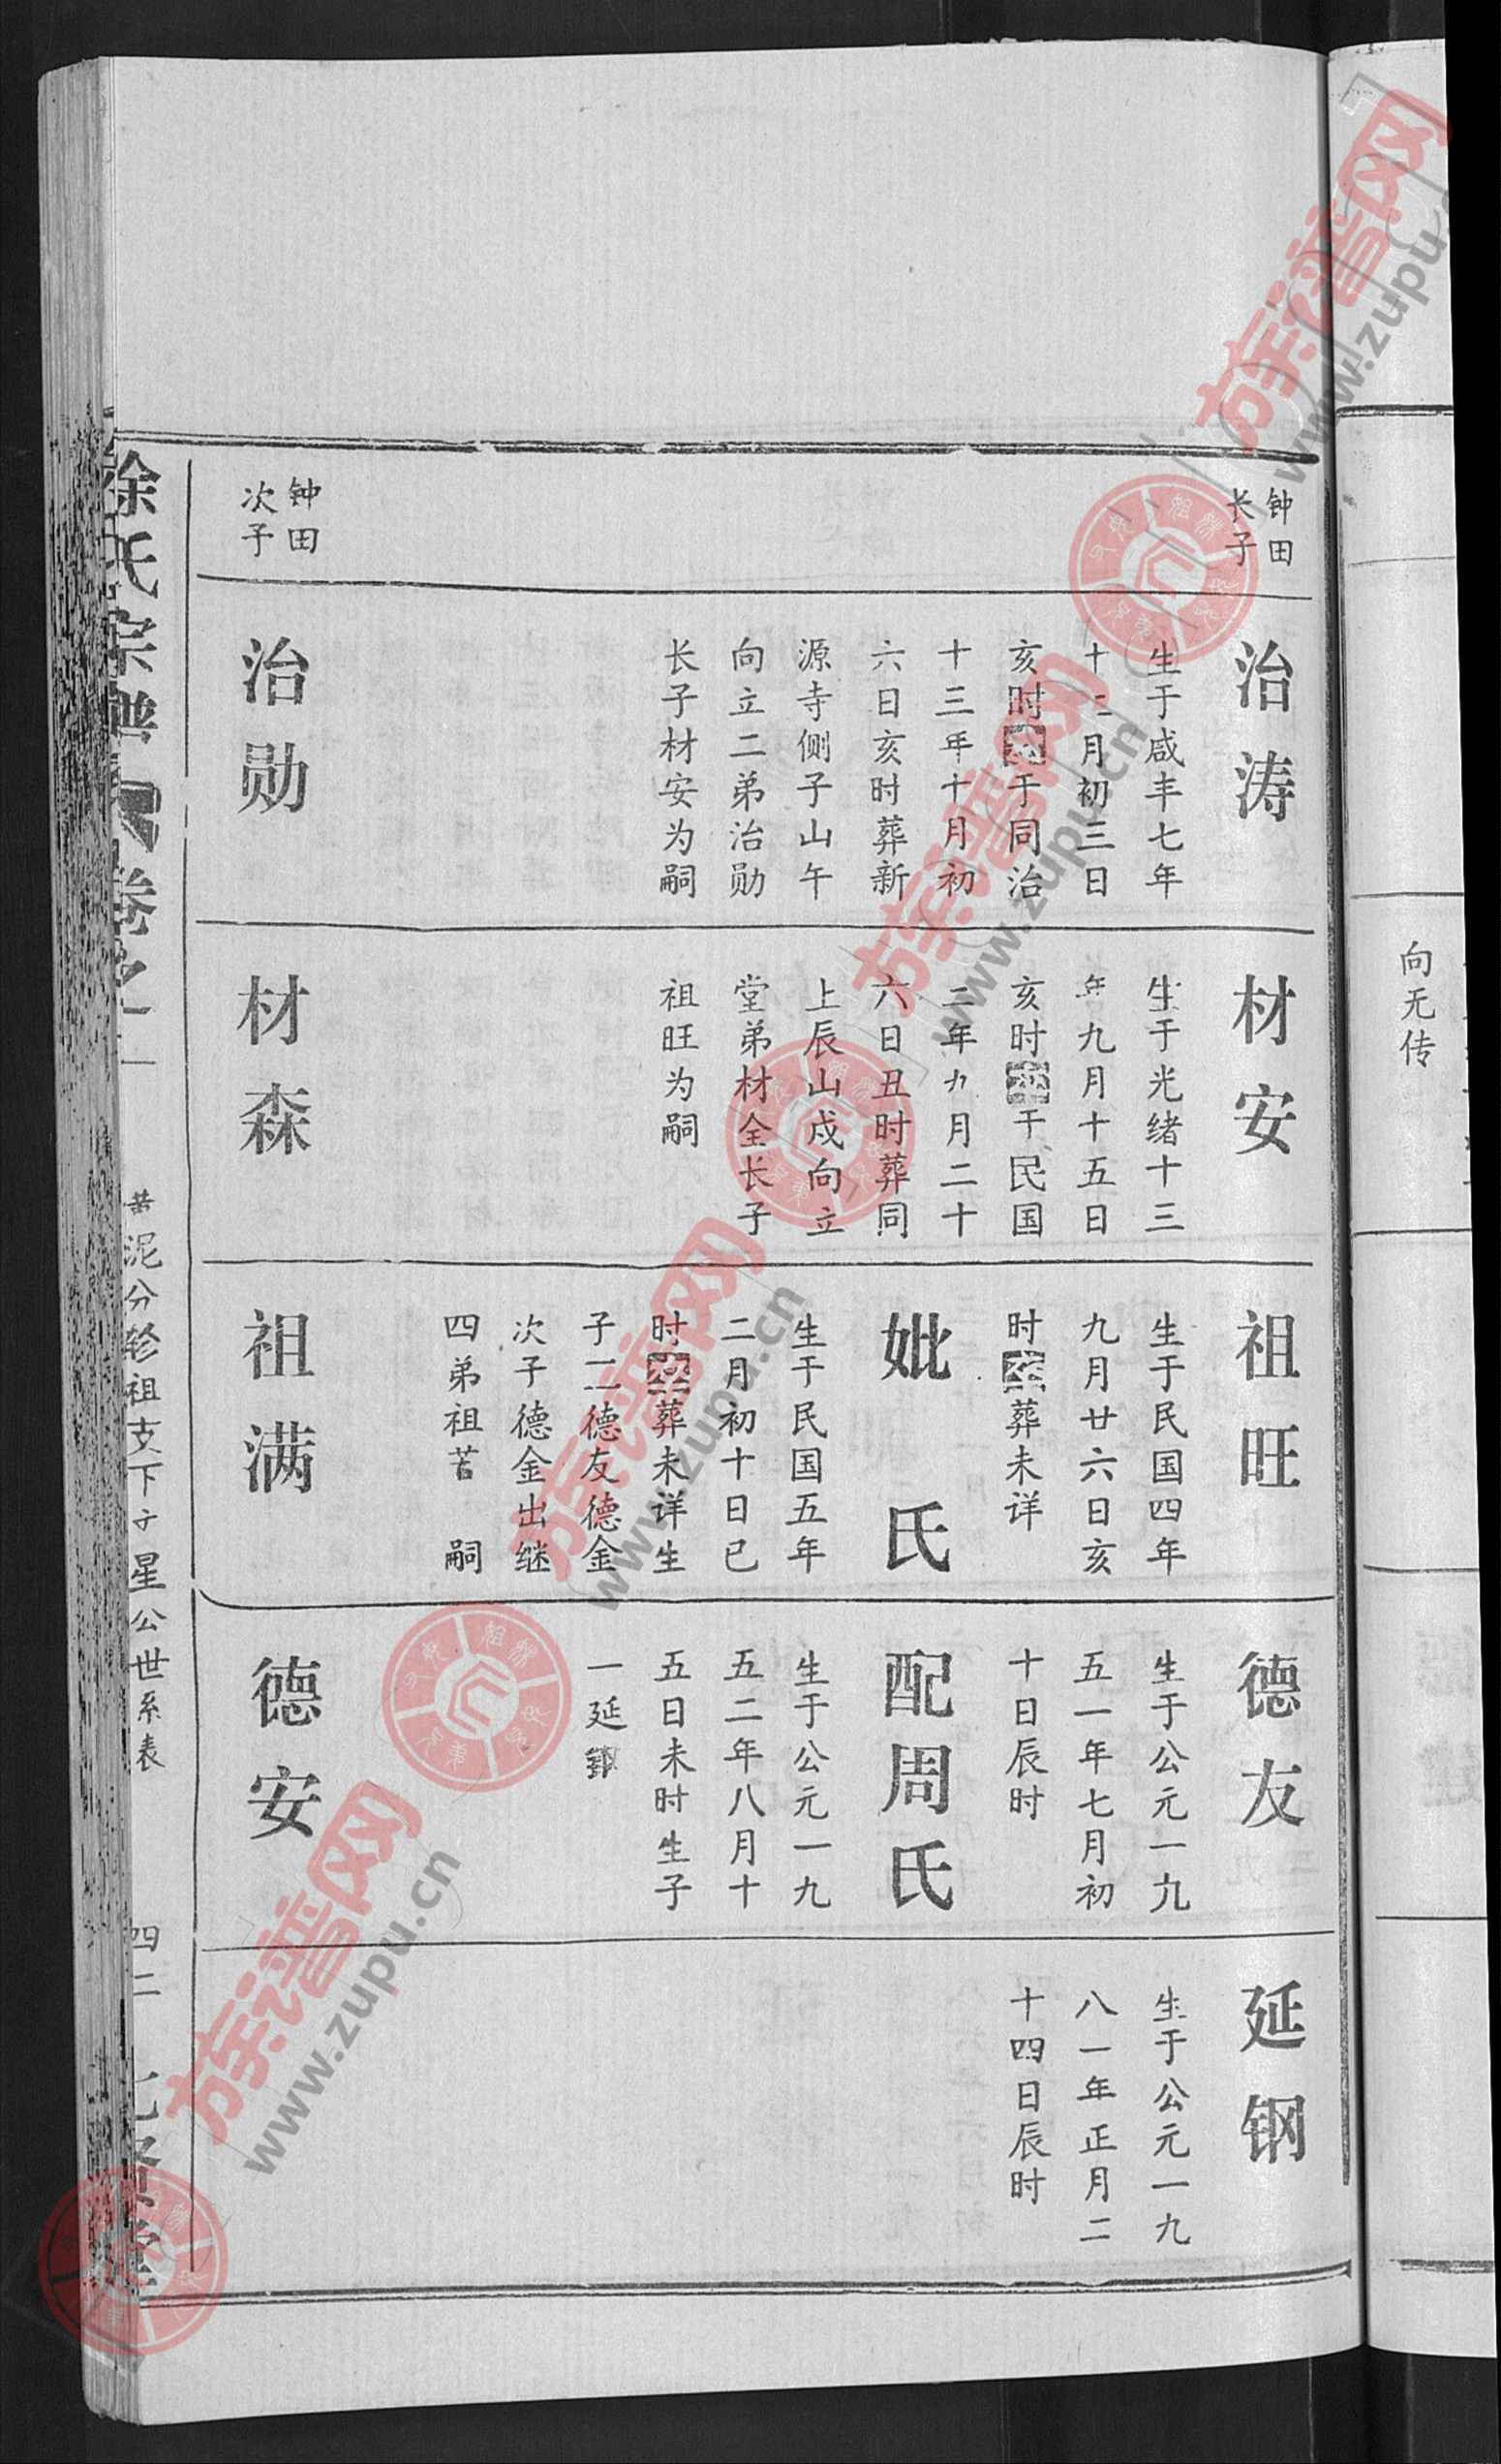 钟田
长子
治涛
生于咸丰七年
十二月初三日
亥时殁于同治
十三年十月初
六日亥时葬新
源寺侧子山午
向立二弟治勋
长子材安为嗣
钟田
次子
治勋
材安
生于光绪十三
年九月十五日
亥时殁于民国
二年九月二十
六日丑时葬同
上辰山戍向立
堂弟材全长子
祖旺为嗣
材森
祖旺
生于民国四年
九月廿六日亥
时殁葬未详
妣氏
生于民国五年
二月初十日已
时殁葬未详生
子二德友德金
次子德金出继
四弟祖苦 嗣
祖满
德友
生于公元一九
五一年七月初
十日辰时
配周氏
生于公元一九
五二年八月十
五日未时生子
一延
德安
延钢
生于公元一九
八一年正月二
十四日辰时
徐氏宗谱
卷之
黄泥分轸祖支下子星公世系表
四二
向无传
族谱网
www.zupu.cn
族谱网
www.zupu.cn
族谱网
www.zupu.cn
族谱网
www.zupu.cn